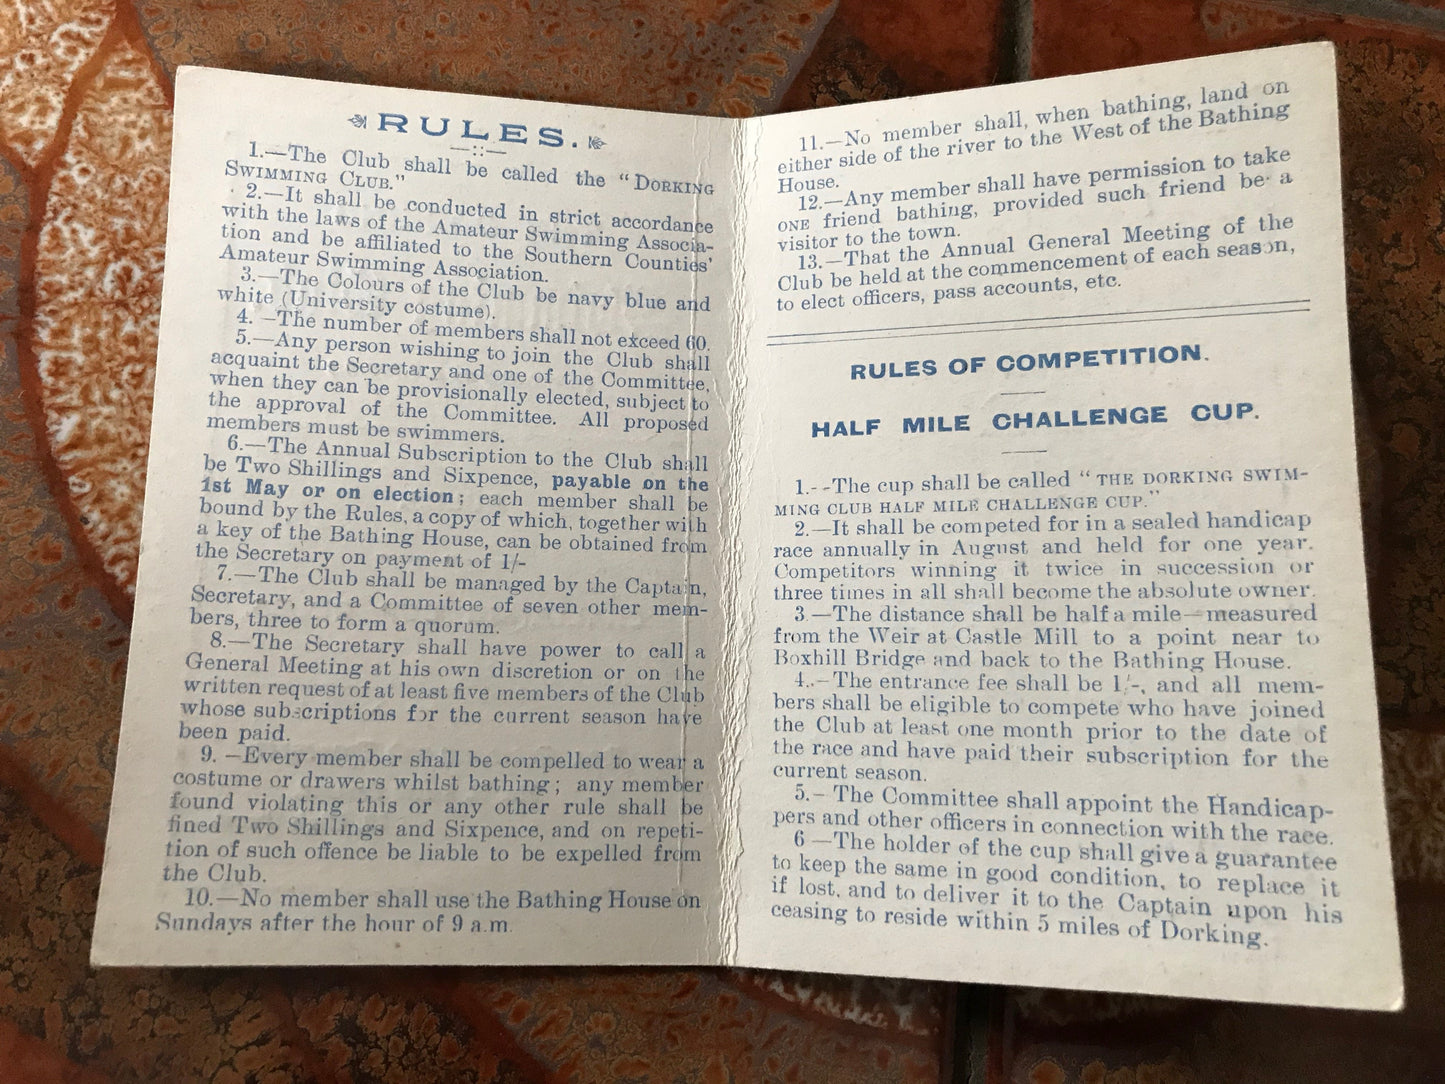 RULES.
1.—The Club shall be called the "DORKING
SWIMMING CLUB."
2.—It shall be conducted in strict accordance
with the laws of the Amateur Swimming Associa-
tion and be affiliated to the Southern Counties'
Amateur Swimming Association.
3.—The Colours of the Club be navy blue and
white (University costume).
4.—The number of members shall not exceed 60.
5.—Any person wishing to join the Club shall
acquaint the Secretary and one of the Committee,
when they can be provisionally elected, subject to
the approval of the Committee. All proposed
members must be swimmers.
6.—The Annual Subscription to the Club shall
be Two Shillings and Sixpence, payable on the
1st May or on election; each member shall be
bound by the Rules, a copy of which, together with
a key of the Bathing House, can be obtained from
the Secretary on payment of 1/-
7.—The Club shall be managed by the Captain,
Secretary, and a Committee of seven other mem-
bers, three to form a quorum.
8.—The Secretary shall have power to call a
General Meeting at his own discretion or on the
written request of at least five members of the Club
whose subscriptions for the current season have
been paid.
9.—Every member shall be compelled to wear a
costume or drawers whilst bathing; any member
found violating this or any other rule shall be
fined Two Shillings and Sixpence, and on repeti-
tion of such offence be liable to be expelled from
the Club.
10.—No member shall use the Bathing House on
Sundays after the hour of 9 a.m.
11.—No member shall, when bathing, land on
either side of the river to the West of the Bathing
House.
12.—Any member shall have permission to take
ONE friend bathing, provided such friend be a
visitor to the town.
13.—That the Annual General Meeting of the
Club be held at the commencement of each season,
to elect officers, pass accounts, etc.
RULES OF COMPETITION.
HALF MILE CHALLENGE CUP.
1.--The cup shall be called "THE DORKING SWIM-
MING CLUB HALF MILE CHALLENGE CUP."
2.—It shall be competed for in a sealed handicap
race annually in August and held for one year.
Competitors winning it twice in succession or
three times in all shall become the absolute owner.
3.—The distance shall be half a mile—measured
from the Weir at Castle Mill to a point near to
Boxhill Bridge and back to the Bathing House.
4.—The entrance fee shall be 1/-, and all mem-
bers shall be eligible to compete who have joined
the Club at least one month prior to the date of
the race and have paid their subscription for the
current season.
5.—The Committee shall appoint the Handicap-
pers and other officers in connection with the race.
6—The holder of the cup shall give a guarantee
to keep the same in good condition, to replace it
if lost, and to deliver it to the Captain upon his
ceasing to reside within 5 miles of Dorking.